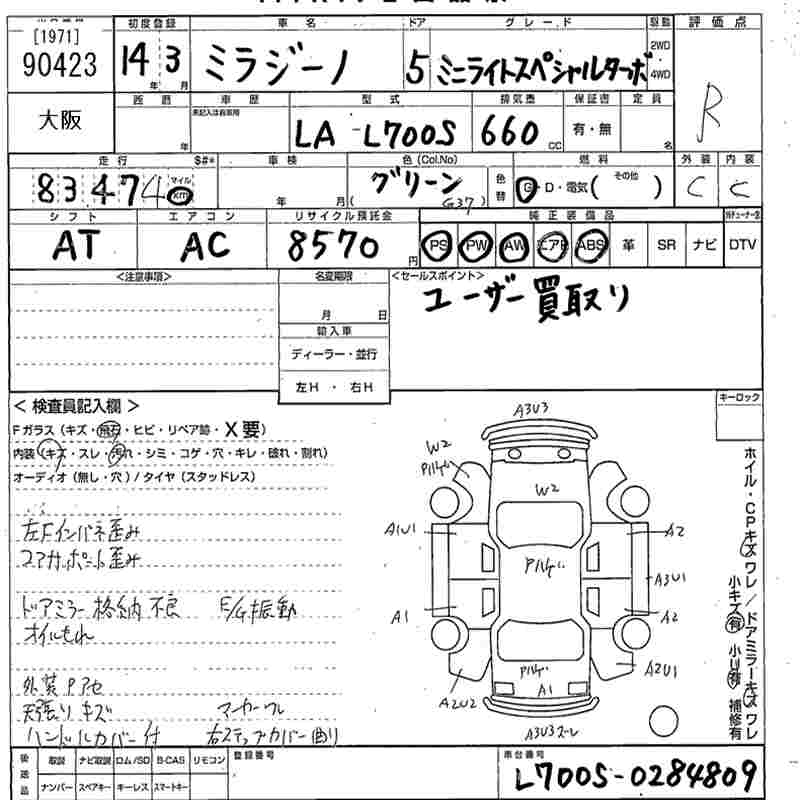 [1971]
初度登録 車名 ドア グレード 駆動 評価点
90423 14年 3月 ミラジーノ 5 ミニライトスペシャルターボ 2WD 4WD R
車歴 型式 排気量 保証書 定員
未記入は自家用
大阪 年 LA-L700S 660cc 有・無 名
走行 $#* 車検 色(Col.No) 燃料 外装 内装
83474 マイル km 年 月 グリーン (G37) 色替 G・D・電気( その他 ) C C
シフト エアコン リサイクル預託金 純正装備品
AT AC 8570円 PS PW AW エアB ABS 革 SR ナビ DTV
<注意事項> 名変期限 <セールスポイント>
ユーザー買取り
月 日
輸入車
ディーラー・並行
左H・右H
<検査員記入欄> キーロック
Fガラス(キズ・飛石・ヒビ・リペア跡・X要)
内装(キズ・スレ・汚れ・シミ・コゲ・穴・キレ・破れ・割れ)
オーディオ(無し・穴)/タイヤ(スタッドレス)
左Fインパネ歪み
コアサポート歪み
ドアミラー格納不良 E/G振動
オイルもれ
外装Pアセ
天張りキズ マーカーワレ
ハンドルカバー付 右ステップカバー曲り
A3U3
W2
W2
A1U1 A2
A3U1
A1 A2
A2U2 A1 A2U1
A3U3スレ
ホイル・CPキズワレ/ドアミラーキズワレ
小キズ有 小U有 補修有
後送品 取説 ナビ取説 ロム/SD B-CAS リモコン 登録番号 車台番号
ナンバー スペアキー キーレス スマートキー L700S-0284809